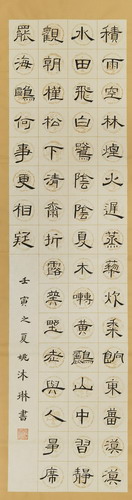 積雨空林煙火遲蒸藜炊黍餉東菑漠漠
水田飛白鷺陰陰夏木囀黃鸝山中習靜
觀朝槿松下清齋折露葵野老與人爭席
罷海鷗何事更相疑
壬寅之夏姚沐琳書